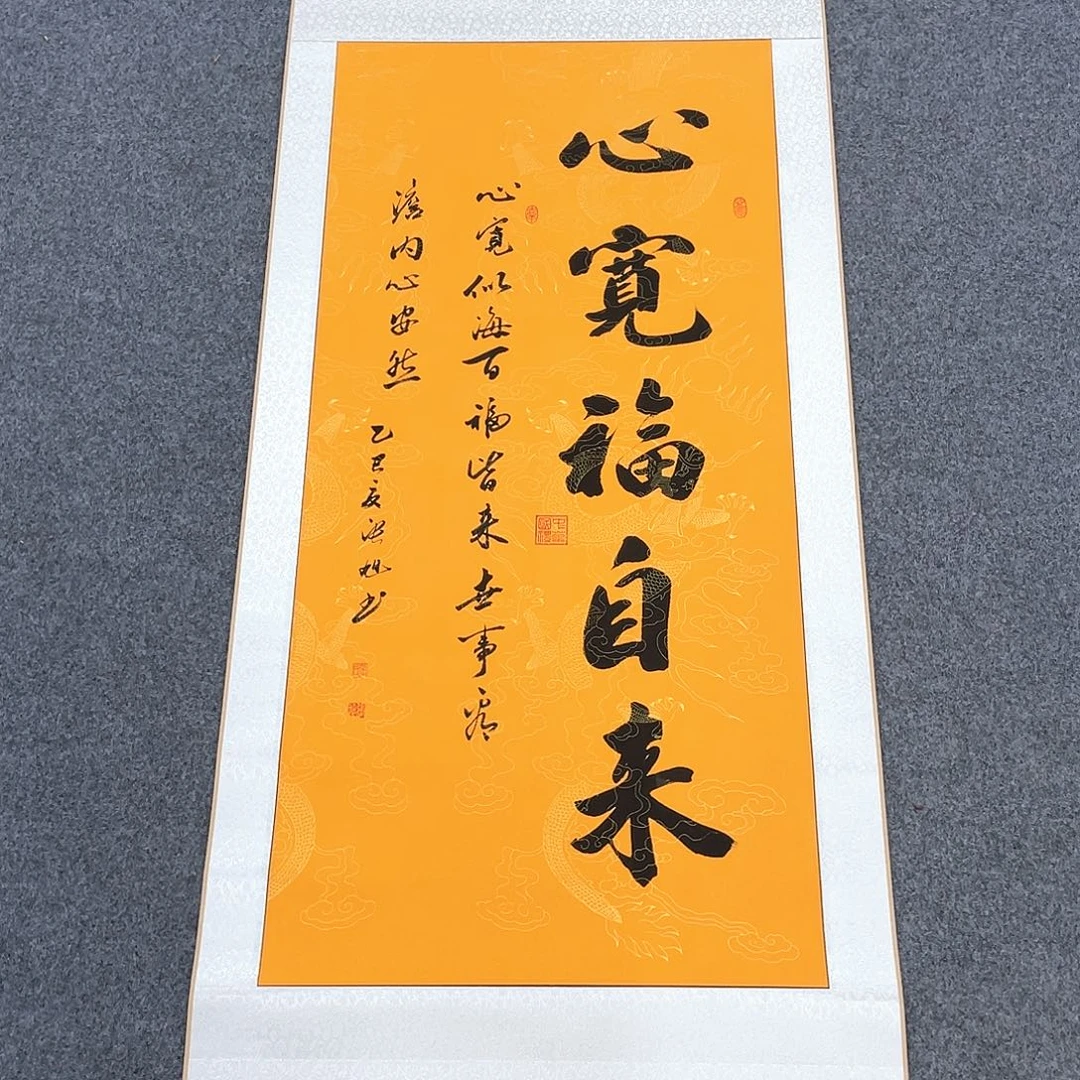 心寬福自来
心寬似海百福皆来世事看
淡内心安然
乙巳夏洪旭书